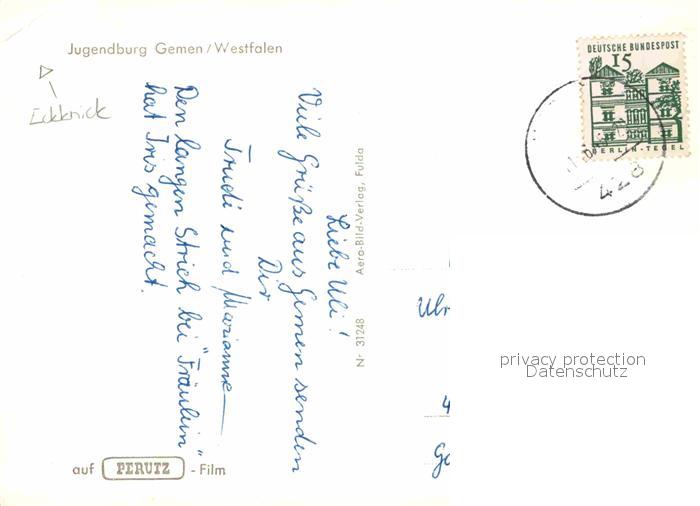 Jugendburg Gemen / Westfalen
Eckknick
Liebe Uli!
Viele Grüße aus Gemen senden
Dir
Trudi und Marianne
Den langen Strich bei "Fräulein"
hat Iris gemacht.
auf PERUTZ - Film
Nr 31248 Aero-Bild-Verlag, Fulda
DEUTSCHE BUNDESPOST
15
BERLIN-TEGEL
428
Ulr
4
Ge
privacy protection
Datenschutz